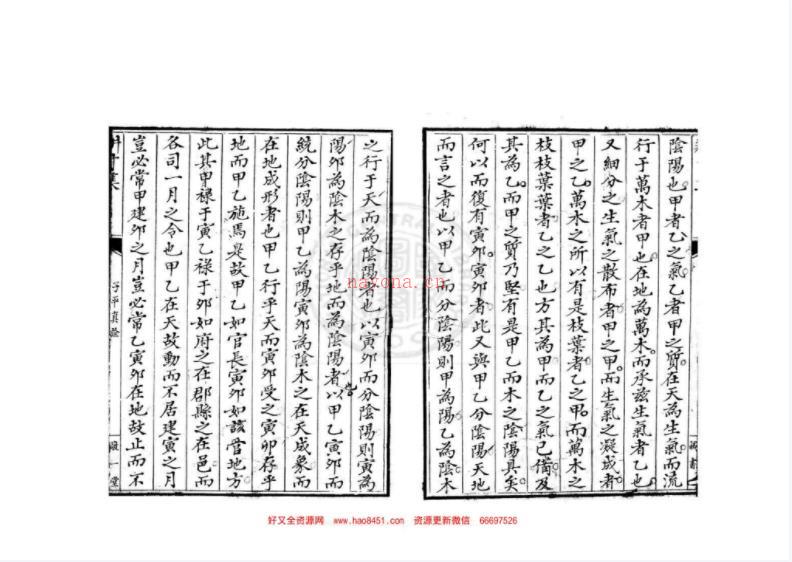 陰陽也甲者乙之氣乙者甲之質在天為生氣而流
行于萬木者甲也在地為萬木而承茲生氣者乙也
又細分之生氣之散布者甲之甲而生氣之凝成者
甲之乙萬木之所以有是枝葉者乙之甲而萬木之
枝枝葉葉者乙之乙也方其為甲而乙之氣已備及
其為乙而甲之質乃堅有是甲乙而木之陰陽具矣
何以而復有寅卯寅卯者此又與甲乙分陰陽天地
而言之者也以甲乙而分陰陽則甲為陽乙為陰木
之行于天而為陰陽者也以寅卯而分陰陽則寅為
陽卯為陰木之存乎地而為陰陽者也以甲乙寅卯而
統分陰陽則甲乙為陽寅卯為陰木之在天成象而
在地成形者也甲乙行乎天而寅卯受之寅卯存乎
地而甲乙施焉是故甲乙如官長寅卯如該管地方
此其甲祿于寅乙祿于卯如府之在郡縣之在邑而
各司一月之令也甲乙在天故動而不居建寅之月
豈必常甲建卯之月豈必常乙寅卯在地故止而不
子平真詮
nayona.cn
好又全资源网 www.hao8451.com 资源更新微信 66697526